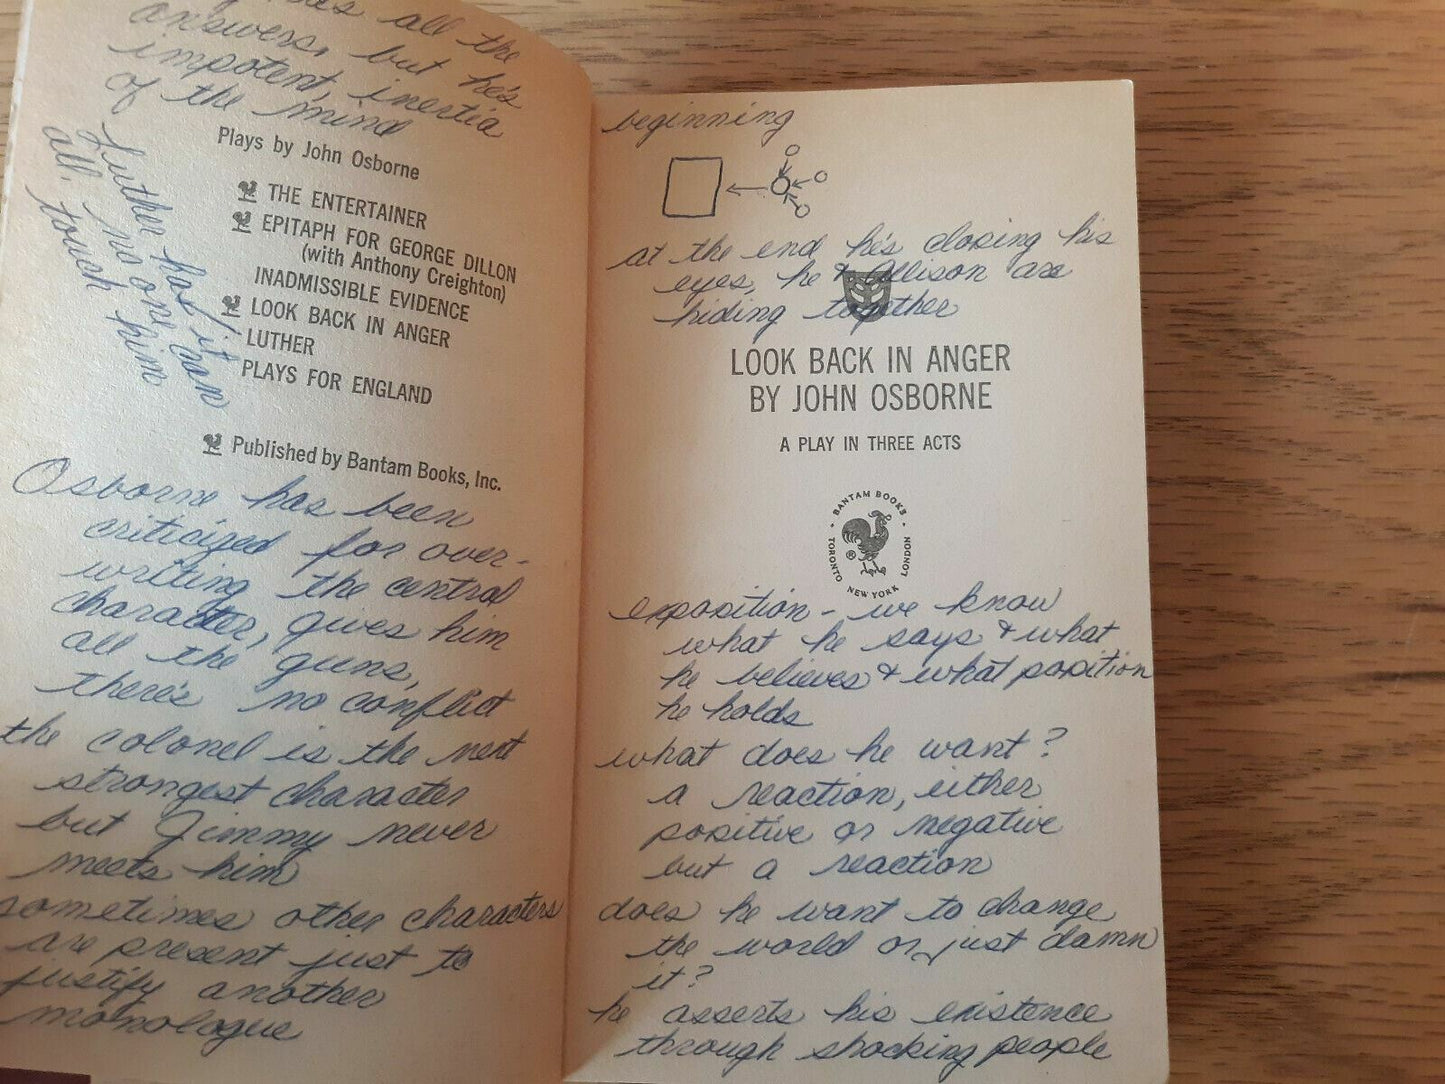 he's all the
answers, but he's
impotent, inertia
of the mind
Plays by John Osborne
THE ENTERTAINER
EPITAPH FOR GEORGE DILLON
(with Anthony Creighton)
INADMISSIBLE EVIDENCE
LOOK BACK IN ANGER
LUTHER
PLAYS FOR ENGLAND
Luther has it
all, no one can
touch him
Published by Bantam Books, Inc.
Osborne has been
criticized for over-
writing the central
character, gives him
all the guns,
there's no conflict
the colonel is the next
strongest character
but Jimmy never
meets him
sometimes other characters
are present just to
justify another
monologue
beginning
at the end he's closing his
eyes, he & Allison are
hiding together
LOOK BACK IN ANGER
BY JOHN OSBORNE
A PLAY IN THREE ACTS
BANTAM BOOKS
TORONTO NEW YORK LONDON
®
exposition - we know
what he says & what
he believes & what position
he holds
what does he want?
a reaction, either
positive or negative
but a reaction
does he want to change
the world or just damn
it?
he asserts his existence
through shocking people